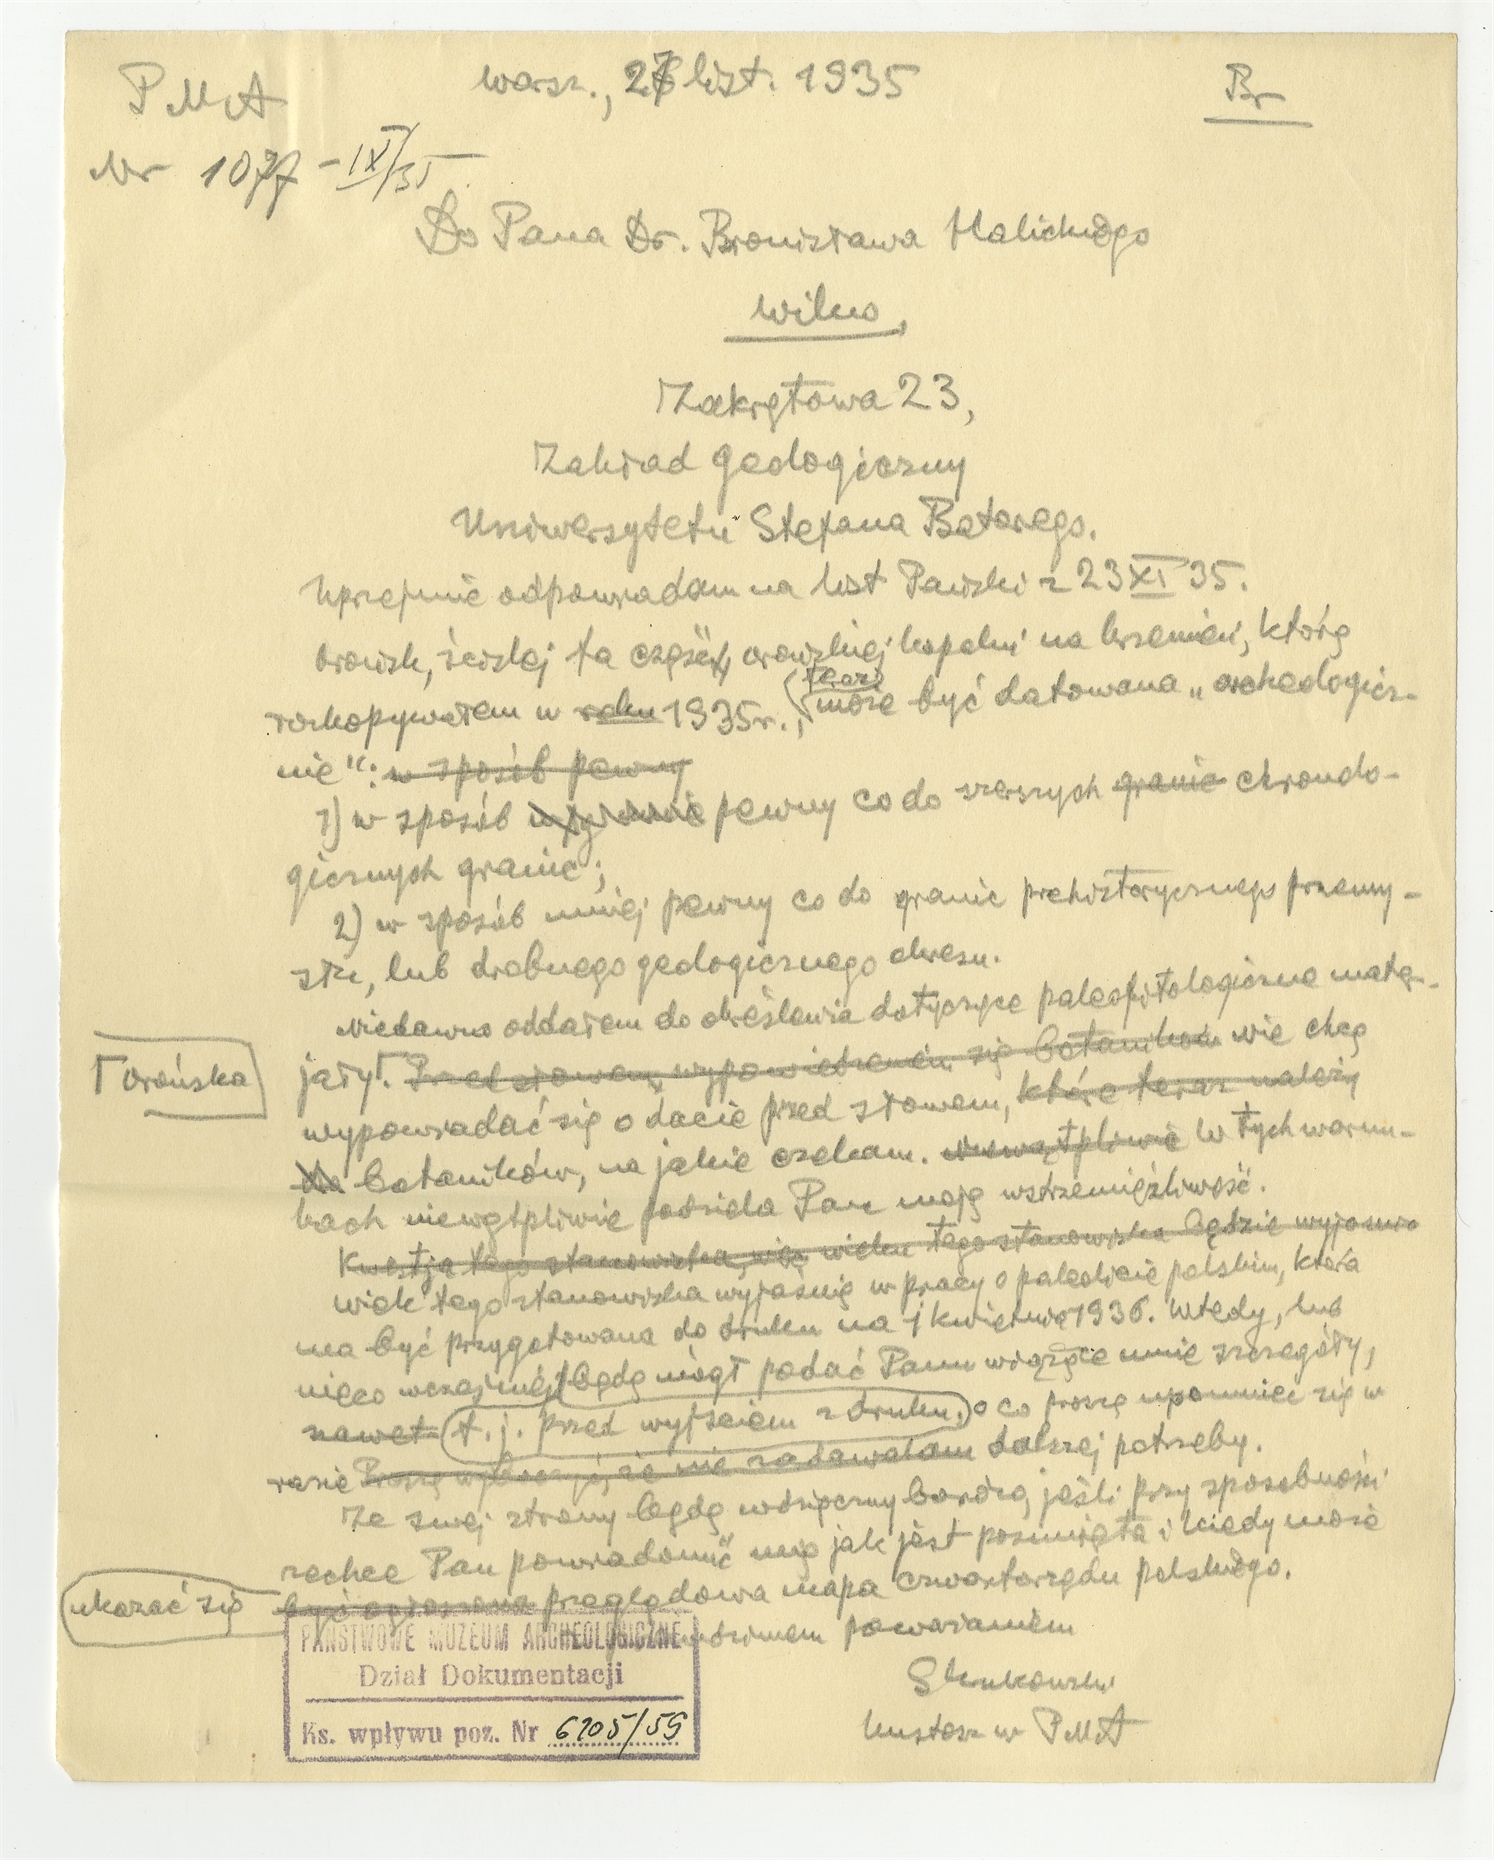 PMA
Warsz., 27 list. 1935
Br
Nr 1077-IX/35
Do Pana Dr. Bronisława Halickiego
Wilno,
Zakrętowa 23,
Zakład geologiczny
Uniwersytetu Stefana Batorego.
Uprzejmie odpowiadam na list Pański z 23 XI 35.
Orońsk, ściślej ta część orońskiej kopalni na krzemień, którą
rozkopywałem w roku 1935 r., teraz może być datowana „archeologicz-
nie“: w sposób pewny
1) w sposób pewny co do szerszych granic chronolo-
gicznych granic;
2) w sposób mniej pewny co do granic prehistorycznego przemy-
słu, lub drobnego geologicznego okresu.
Niedawno oddałem do określenia dotyczące paleofitologiczne mate-
z Orońska
rjały. Przed słowem wypowiedzeniem się botaników nie chcę
wypowiadać się o dacie przed słowem, które teraz należy
do botaników, na jakie czekam. niewątpliwie W tych warun-
kach niewątpliwie podziela Pan moją wstrzemięźliwość.
Kwestja tego stanowiska, wieku tego stanowiska będzie wyjaśnio
Wiek tego stanowiska wyjaśnię w pracy o paleolicie polskim, która
ma być przygotowana do druku na 1 kwietnia 1936. Wtedy, lub
nieco wcześniej będę mógł podać Panu wiążące mnie szczegóły,
nawet t. j. przed wyjściem z druku, o co proszę upomnieć się w
razie Proszę dalszej potrzeby.
Ze swej strony będę wdzięczny bardzo, jeśli przy sposobności
zechce Pan powiadomić mię jak jest posunięta i kiedy może
ukazać się
być ogłoszona przeglądowa mapa czwartorzędu polskiego.
poważaniem
SKrukowski
kustosz w PMA
PAŃSTWOWE MUZEUM ARCHEOLOGICZNE
Dział Dokumentacji
Ks. wpływu poz. Nr 6205/59